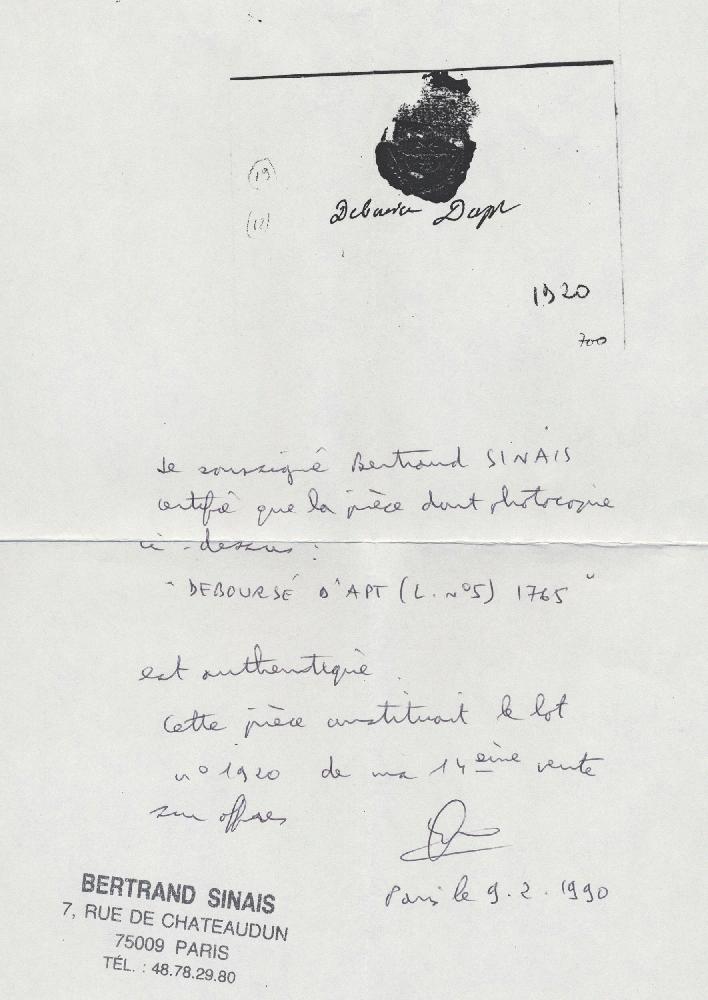 (19)
(12)
1920
700
Je soussigné Bertrand SINAIS
certifie que la pièce dont photocopie
ci-dessus :
"DEBOURSÉ D'APT (L. N°5) 1765"
est authentique.
Cette pièce constituait le lot
n° 1920 de ma 14ème vente
sur offres
Paris le 9.2.1990
BERTRAND SINAIS
7, RUE DE CHATEAUDUN
75009 PARIS
TÉL. : 48.78.29.80